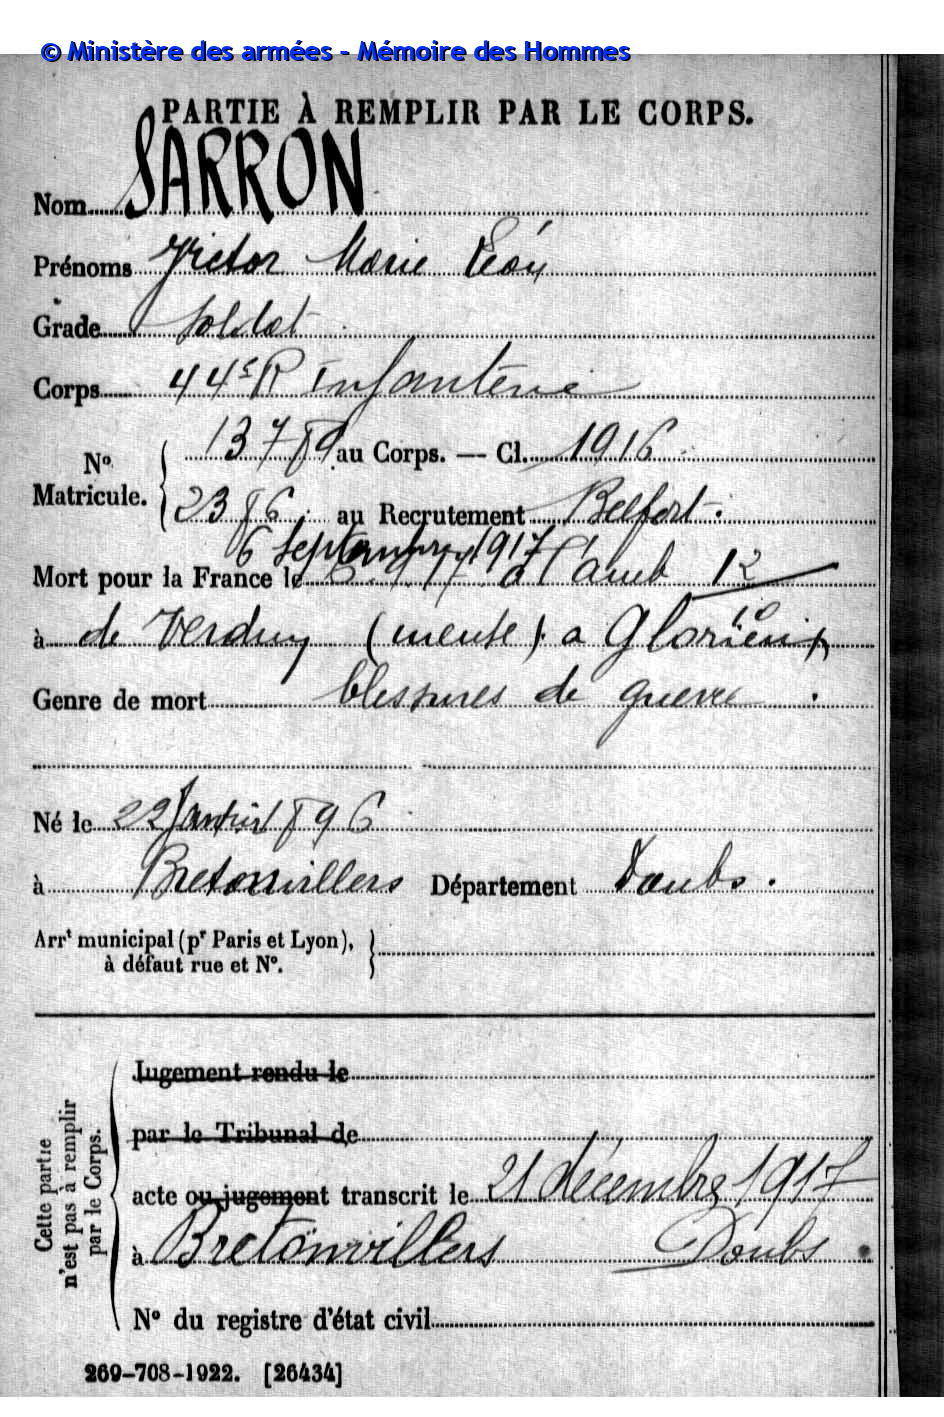 © Ministère des armées - Mémoire des Hommes
PARTIE À REMPLIR PAR LE CORPS.
Nom SARRON
Prénoms Victor Marie Léon
Grade Soldat
Corps 44e R Infanterie
Nº Matricule. 13789 au Corps. — Cl. 1916
2386 au Recrutement Belfort.
6 Septembre 1917
Mort pour la France le à l'amb 12
à de Verdun (meuse). a Glorieux
Genre de mort blessures de guerre.
Né le 22 Janvier 1896
à Bretonvillers Département Doubs.
Arrt municipal (pr Paris et Lyon),
à défaut rue et Nº.
Cette partie
n'est pas à remplir
par le Corps.
Jugement rendu le
par le Tribunal de
acte ou jugement transcrit le 21 décembre 1917
à Bretonvillers Doubs
Nº du registre d'état civil
269-708-1922. [26434]